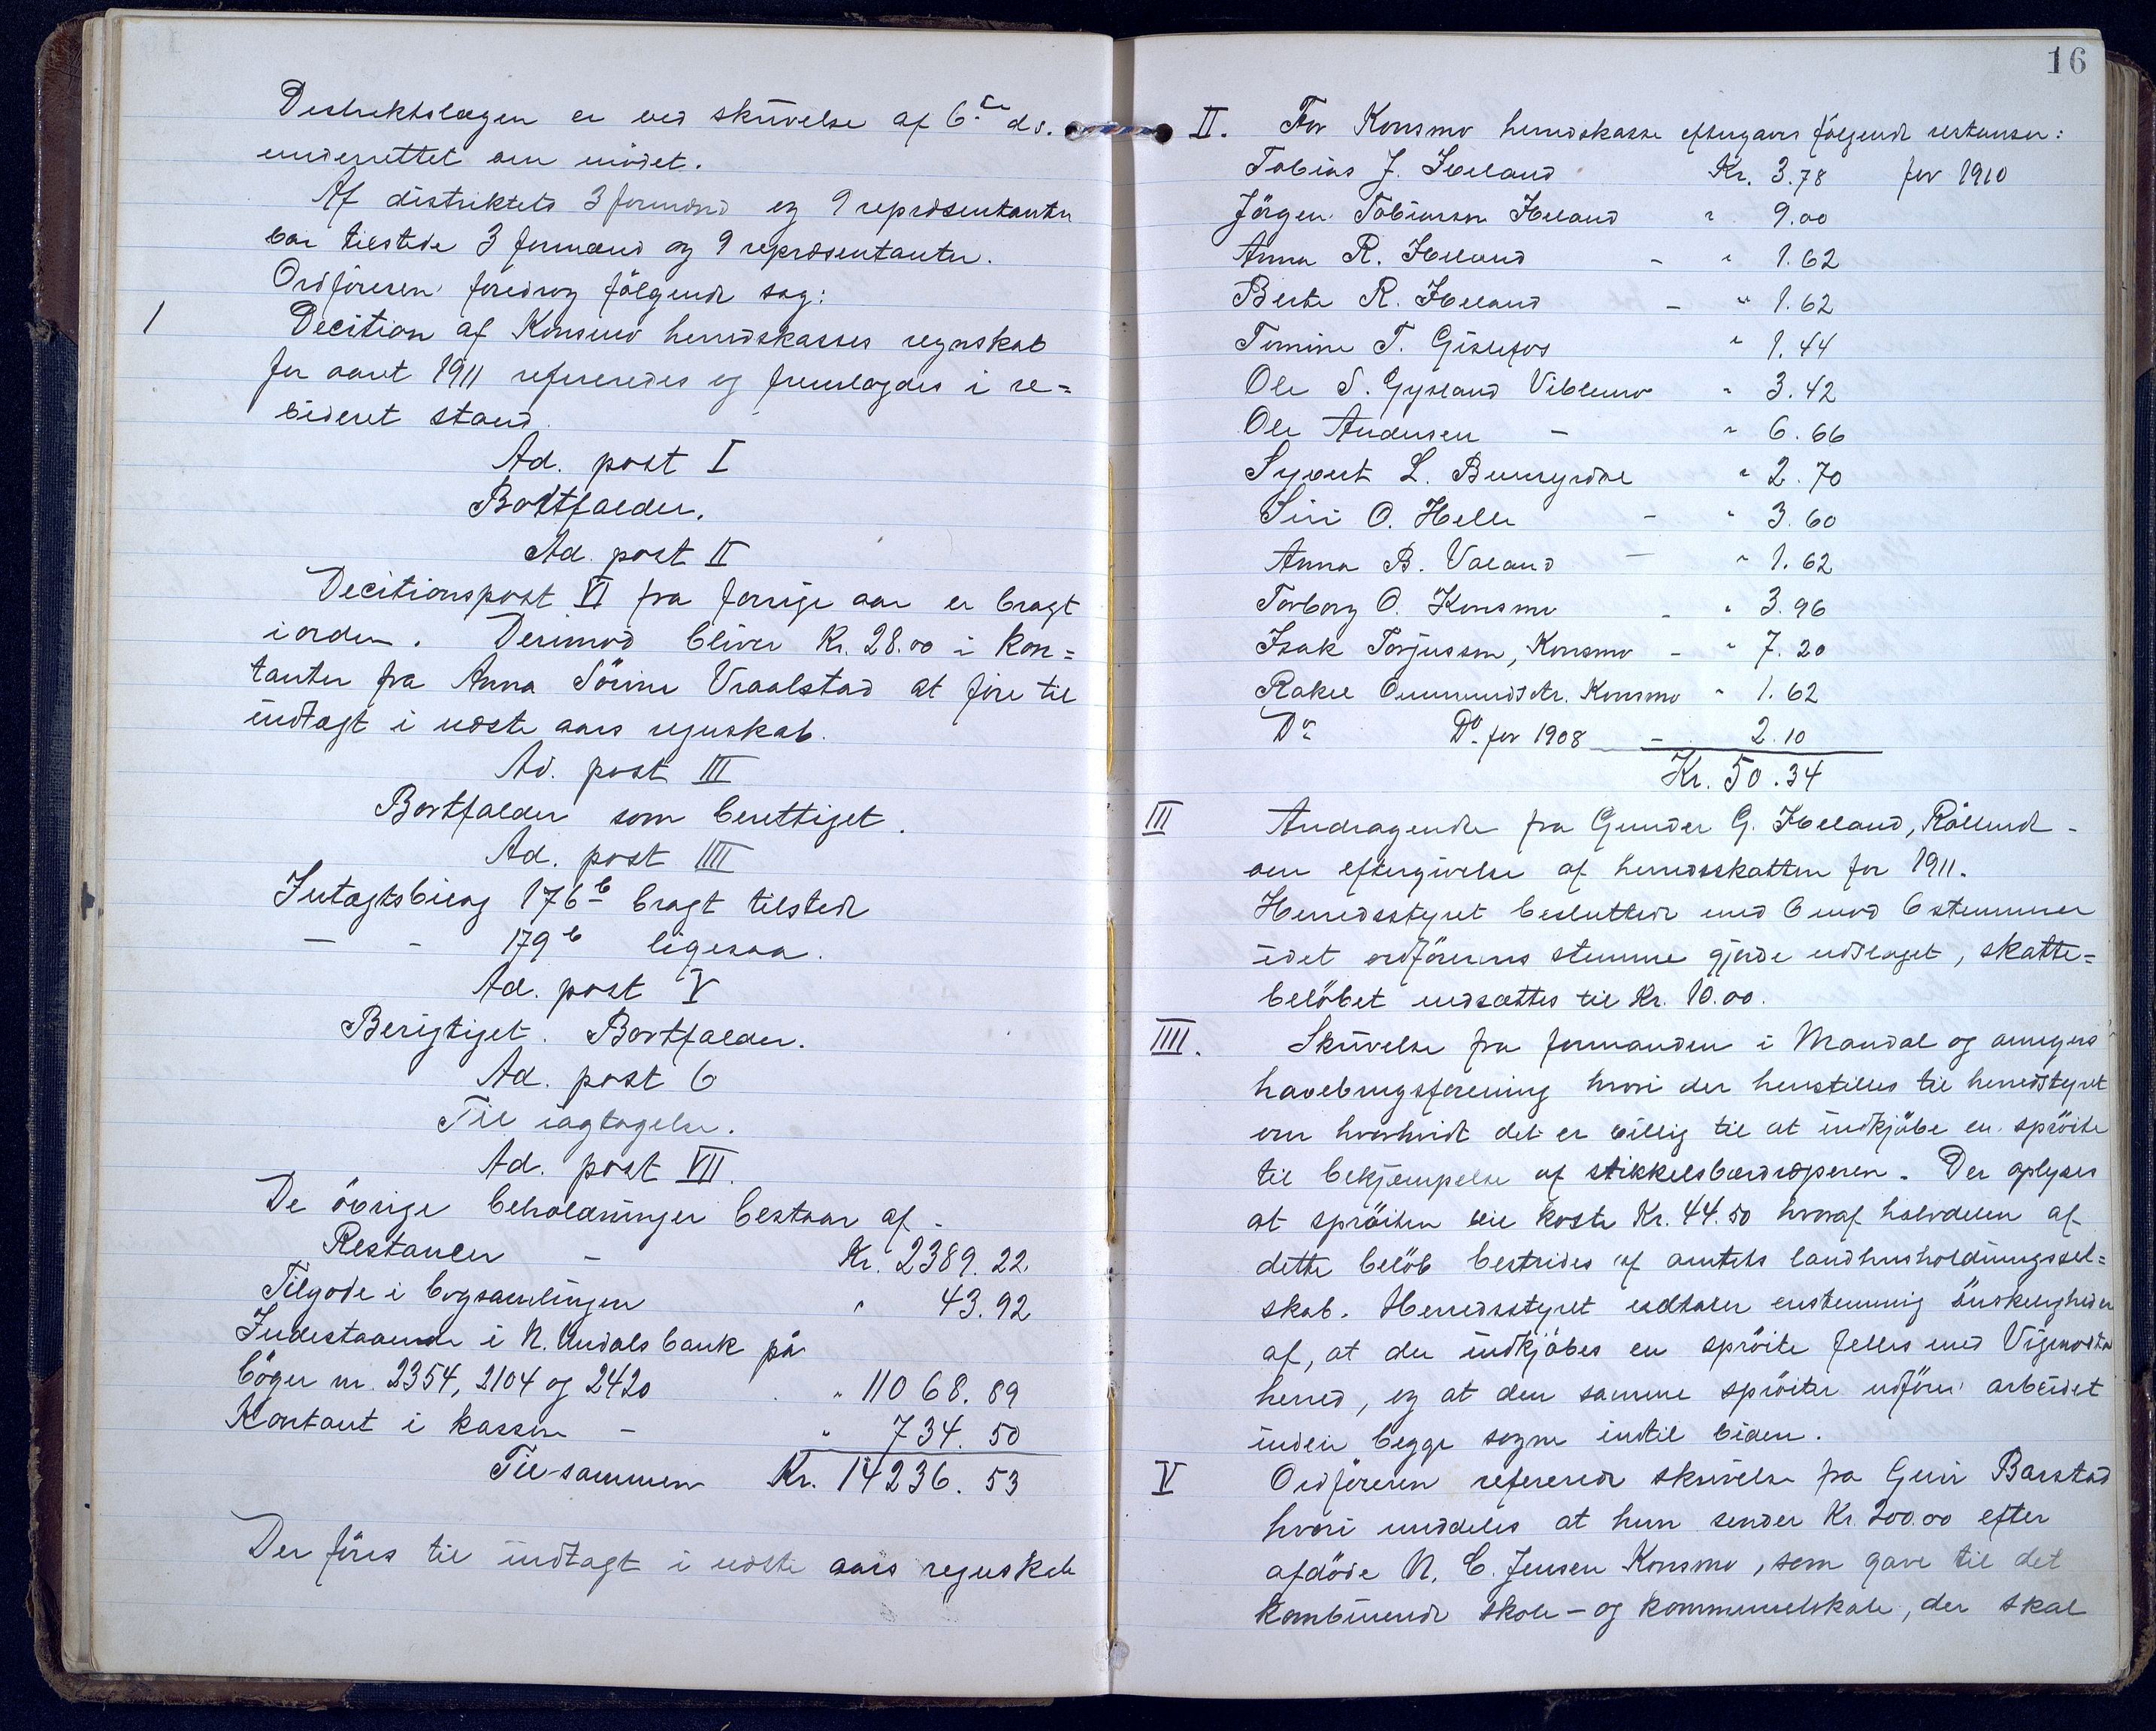 Destriktslægen er ved skrivelse af 6te ds.
underrettet om mödet.
Af distriktets 3 formænd og 9 repræsentanter
var tilstede 3 formænd og 9 repræsentanter.
Ordföreren foredrog fölgende sag:
1 Decition af Konsmo herredskasses regnskab
for aaret 1911 refereredes og fremlagdes i re=
videret stand.
Ad. post I
Bortfalder.
Ad. post II
Decitionspost VI fra forrige aar er bragt
iorden. Derimod bliver Kr. 28.00 i kon=
tanter fra Anna Sörine Vraalstad at före til
indtægt i næste aars regnskab.
Ad. post III
Bortfalder som berettiget.
Ad. post IIII
Intægtsbilag 176b bragt tilstede
— - 179b ligesaa.
Ad. post V
Berigtiget. Bortfalder.
Ad. post 6
Til iagtagelse.
Ad. post VII.
De övrige beholdninger bestaar af -
Restancer - Kr. 2389.22.
Tilgode i bogsamlingen " 43.92
Indestaaende i N. Undals bank på
böger nr. 2354, 2104 og 2420 " 11068.89
Kontant i kassen - " 734.50
Til sammen Kr. 14236.53
Der föres til indtægt i næste aars regnskab
16
II. For Konsmo herredskasse eftergaves fölgende restanser:
Tobias J. Ileland Kr. 3.78 for 1910
Jörgen Tobiassen Ileland " 9.00
Anna R. Ileland - " 1.62
Berte R. Ileland - " 1.62
Tomine T. Gislefos " 1.44
Ole S. Gysland Viblemo " 3.42
Ole Andersen - " 6.66
Syvert L. " 2.70
Siri O. Helle - " 3.60
Anna B. Valand - " 1.62
Torborg O. Konsmo - " 3.96
Isak Torjussen, Konsmo - " 7.20
Rakel Ommundsdtr. Konsmo " 1.62
Do Do for 1908 - 2.10
Kr. 50.34
III Andragende fra Gunder G. Ileland, -
om eftergivelse af herredsskatten for 1911.
Herredsstyret besluttede med 6 mod 6 stemmer
idet ordförerens stemme gjorde udslaget, skatte=
belöbet nedsættes til Kr. 10.00.
IIII. Skrivelse fra formanden i Mandal og omegns
havebrugsforening hvori der henstilles til herredstyret
om hvorhvidt det er villig til at indkjöbe en spröite
til bekjæmpelse af stikkelsbærdræperen. Der oplyses
at spröiten vil koste Kr. 44.50 hvoraf halvdelen af
dette belöb bestrides af amtets landhusholdningssel=
skab. Herredsstyret udtaler enstemmig önskeligheden
af, at der indkjöbes en spröite felles med Vigmostad
herred, og at den samme spröiter udförer arbeidet
inden begge sogne indtil viden.
V Ordföreren refererede skrivelse fra Barstad
hvori meddeles at hun sender Kr. 200.00 efter
afdöde N. C. Jensen Konsmo, som gave til det
kombinerede skole- og kommunelokale, der skal